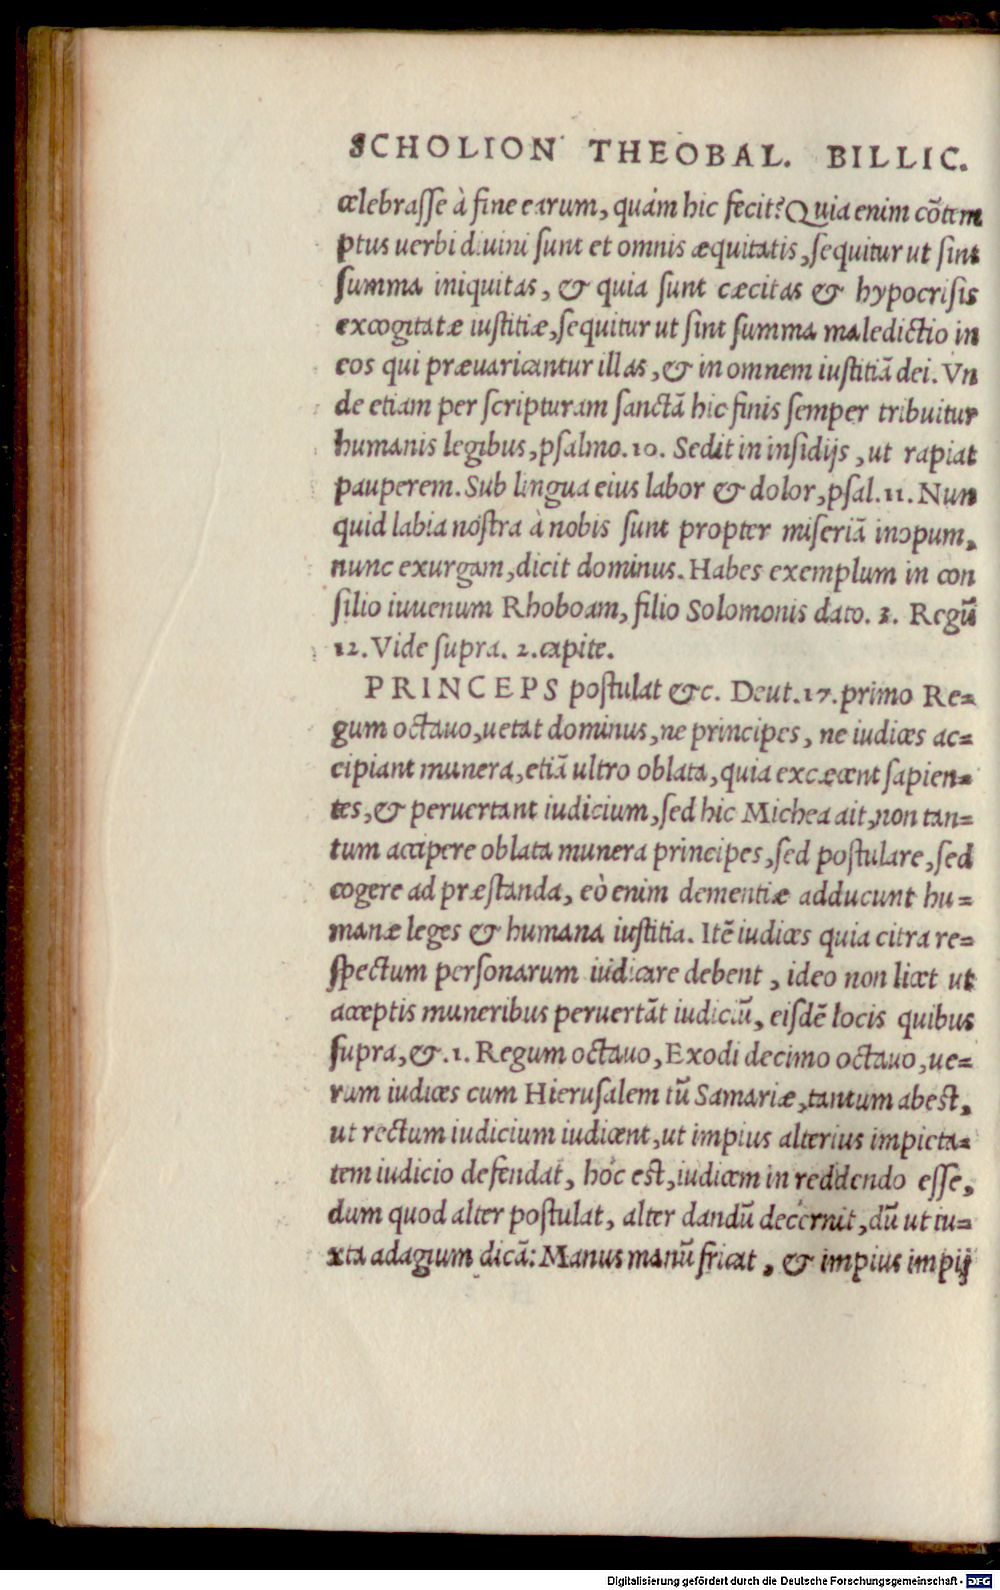 SCHOLION THEOBAL. BILLIC.
celebrasse à fine earum, quám hic fecit? Quia enim cõtem
ptus uerbi diuini sunt et omnis æquitatis, sequitur ut sint
summa iniquitas, & quia sunt cæcitas & hypocrisis
excogitatæ iustitiæ, sequitur ut sint summa maledictio in
eos qui præuaricantur illas, & in omnem iustitiã dei. Vn
de etiam per scripturam sanctã hic finis semper tribuitur
humanis legibus, psalmo. 10. Sedit in insidijs, ut rapiat
pauperem. Sub lingua eius labor & dolor, psal. 11. Nun
quid labia nostra à nobis sunt propter miseriã inopum,
nunc exurgam, dicit dominus. Habes exemplum in con
silio iuuenum Rhoboam, filio Solomonis dato. 3. Regũ
12. Vide supra. 2. capite.
PRINCEPS postulat &c. Deut. 17. primo Re=
gum octauo, uetat dominus, ne principes, ne iudices ac=
cipiant munera, etiã ultro oblata, quia excæcent sapien=
tes, & peruertant iudicium, sed hic Michea ait, non tan=
tum accipere oblata munera principes, sed postulare, sed
cogere ad præstanda, eò enim dementiæ adducunt hu=
manæ leges & humana iustitia. Itẽ iudices quia citra re=
spectum personarum iudicare debent, ideo non licet ut
acceptis muneribus peruertãt iudiciũ, eisdẽ locis quibus
supra, &. 1. Regum octauo, Exodi decimo octauo, ue=
rum iudices cum Hierusalem tũ Samariæ, tantum abest,
ut rectum iudicium iudicent, ut impius alterius impieta=
tem iudicio defendat, hoc est, iudicem in reddendo esse,
dum quod alter postulat, alter dandũ decernit, dũ ut iu=
xta adagium dicã: Manus manũ fricat, & impius impij
Digitalisierung gefördert durch die Deutsche Forschungsgemeinschaft - DFG